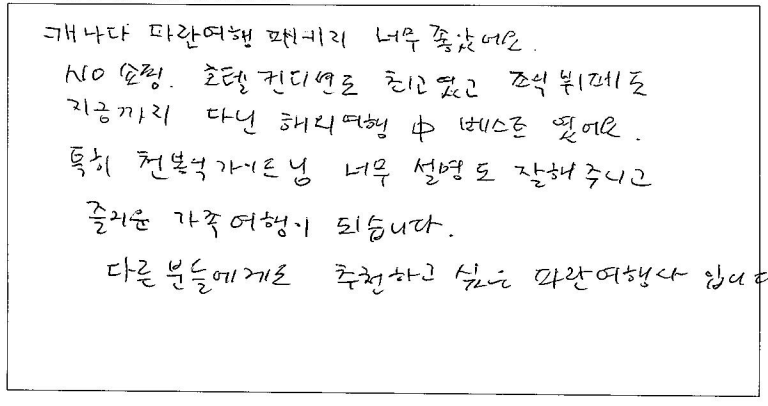 캐나다 파란여행 패키지 너무 좋았어요.
NO 쇼핑. 호텔 컨디션도 최고였고 조식 뷔페도
지금까지 다닌 해외여행 中 베스트 였어요.
특히 천복석가이드님 너무 설명도 잘해주시고
즐거운 가족여행이 되습니다.
다른 분들에게도 추천하고 싶은 파란여행사 입니다